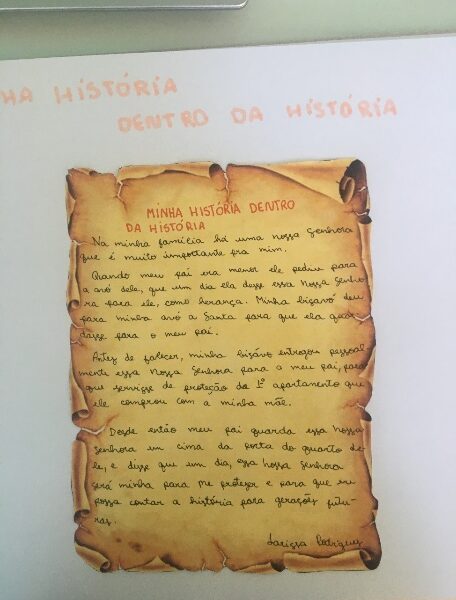 HA HISTÓRIA
DENTRO DA HISTÓRIA
MINHA HISTÓRIA DENTRO
DA HISTÓRIA
Na minha família há uma nossa Senhora
que é muito importante pra mim.
Quando meu pai era menor ele pediu para
a avó dele, que um dia ela desse essa Nossa Senho
ra para ele, como herança. Minha bisavó deu
para minha avó a Santa para que ela guar
dasse para o meu pai.
Antes de falecer, minha bisavó entregou pessoal
mente essa Nossa Senhora para o meu pai, para
que servisse de proteção do 1º apartamento que
ele comprou com a minha mãe.
Desde então meu pai guarda essa Nossa
Senhora em cima da porta do quarto de
le, e disse que um dia, essa Nossa Senhora
será minha para me proteger e para que eu
possa contar a história para gerações futu-
ras.
Larissa Rodrigues